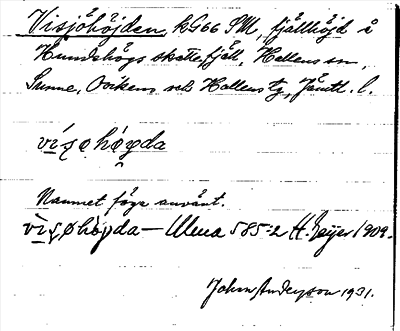 Visjöhöjden, kG66 SM, fjällhöjd å
Hundshögs skattefjäll, Hallens sn,
Sunne, Ovikens och Hallens tg, Jämtl. l.
vísøhøyda
Namnet föga använt.
vìsøhøyda — Ulma 585:2 H. Geijer 1909.
Johan Anderson 1931.